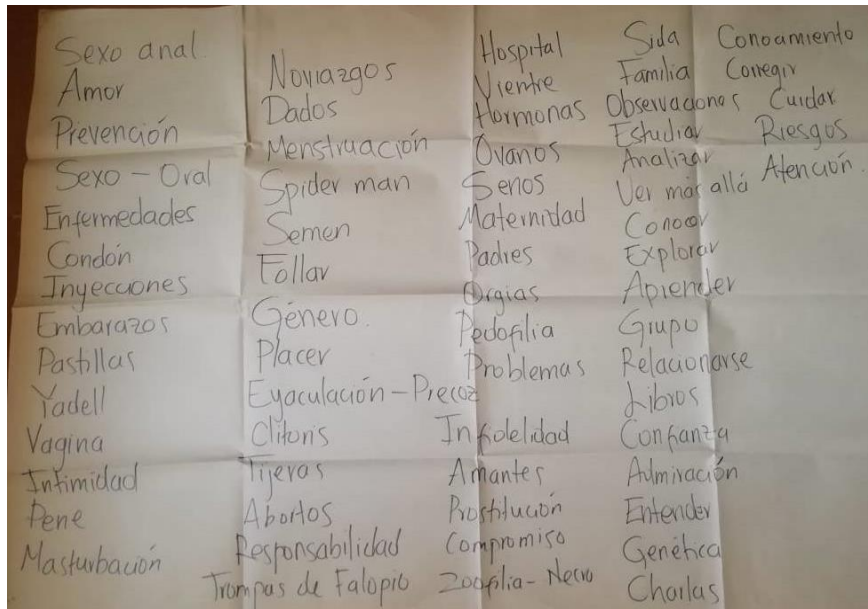 Sexo anal.
Amor
Prevención
Sexo - Oral
Enfermedades
Condón
Inyecciones
Embarazos
Pastillas
Yadell
Vagina
Intimidad
Pene
Masturbación
Noviazgos
Dados
Menstruación
Spider man
Semen
Follar
Género.
Placer
Eyaculación - Precoz
Clitoris
Tijeras
Abortos
Responsabilidad
Trompas de Falopio
Hospital
Vientre
Hormonas
Óvarios
Senos
Maternidad
Padres
Orgias
Pedofilia
Problemas
Infidelidad
Amantes
Prostitución
Compromiso
Zoofilia - Necro
Sida
Familia
Observaciones
Estudiar
Analizar
Ver más allá
Conocer
Explorar
Aprender
Grupo
Relacionarse
Libros
Confianza
Admiración
Entender
Genética
Charlas
Conocimiento
Corregir
Cuidar
Riesgos
Atención.